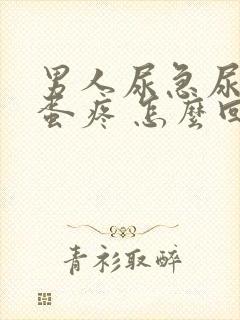 男人尿急尿
蛋疼 怎麼回
青衫取醉